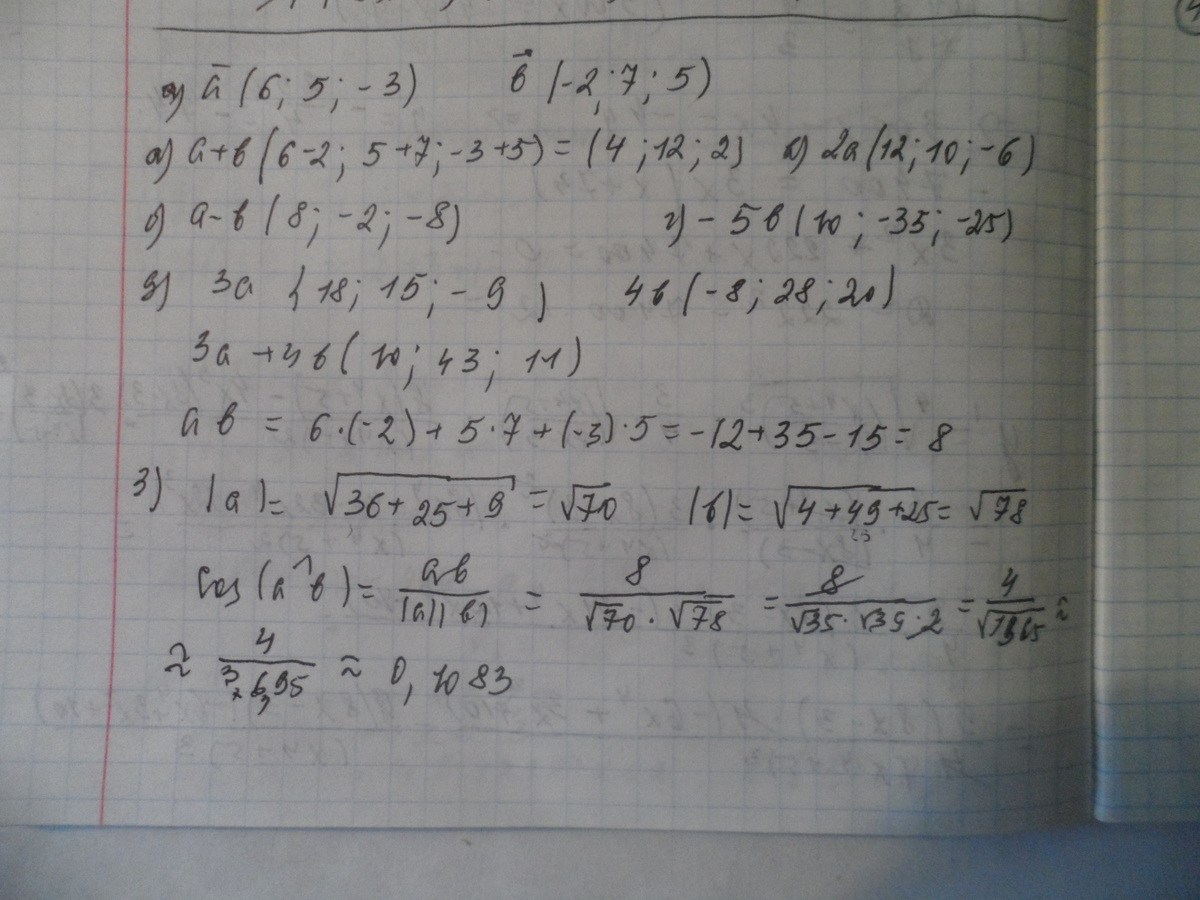 ā (6; 5; -3) b⃗ (-2; 7; 5)
а) a+b (6-2; 5+7; -3+5) = (4; 12; 2) в) 2a (12; 10; -6)
б) a-b (8; -2; -8) г) -5b (10; -35; -25)
д) 3a {18; 15; -9) 4b (-8; 28; 20)
3a+4b (10; 43; 11)
ab = 6·(-2) + 5·7 + (-3)·5 = -12+35-15 = 8
3) |a| = √36+25+9 = √70 |b| = √4+49+25 = √78
cos (a^b) = ab/|a||b| = 8/√70·√78 = 8/√35·√39·2 = 4/√1365 ≈
≈ 4/36,95 ≈ 0,1083